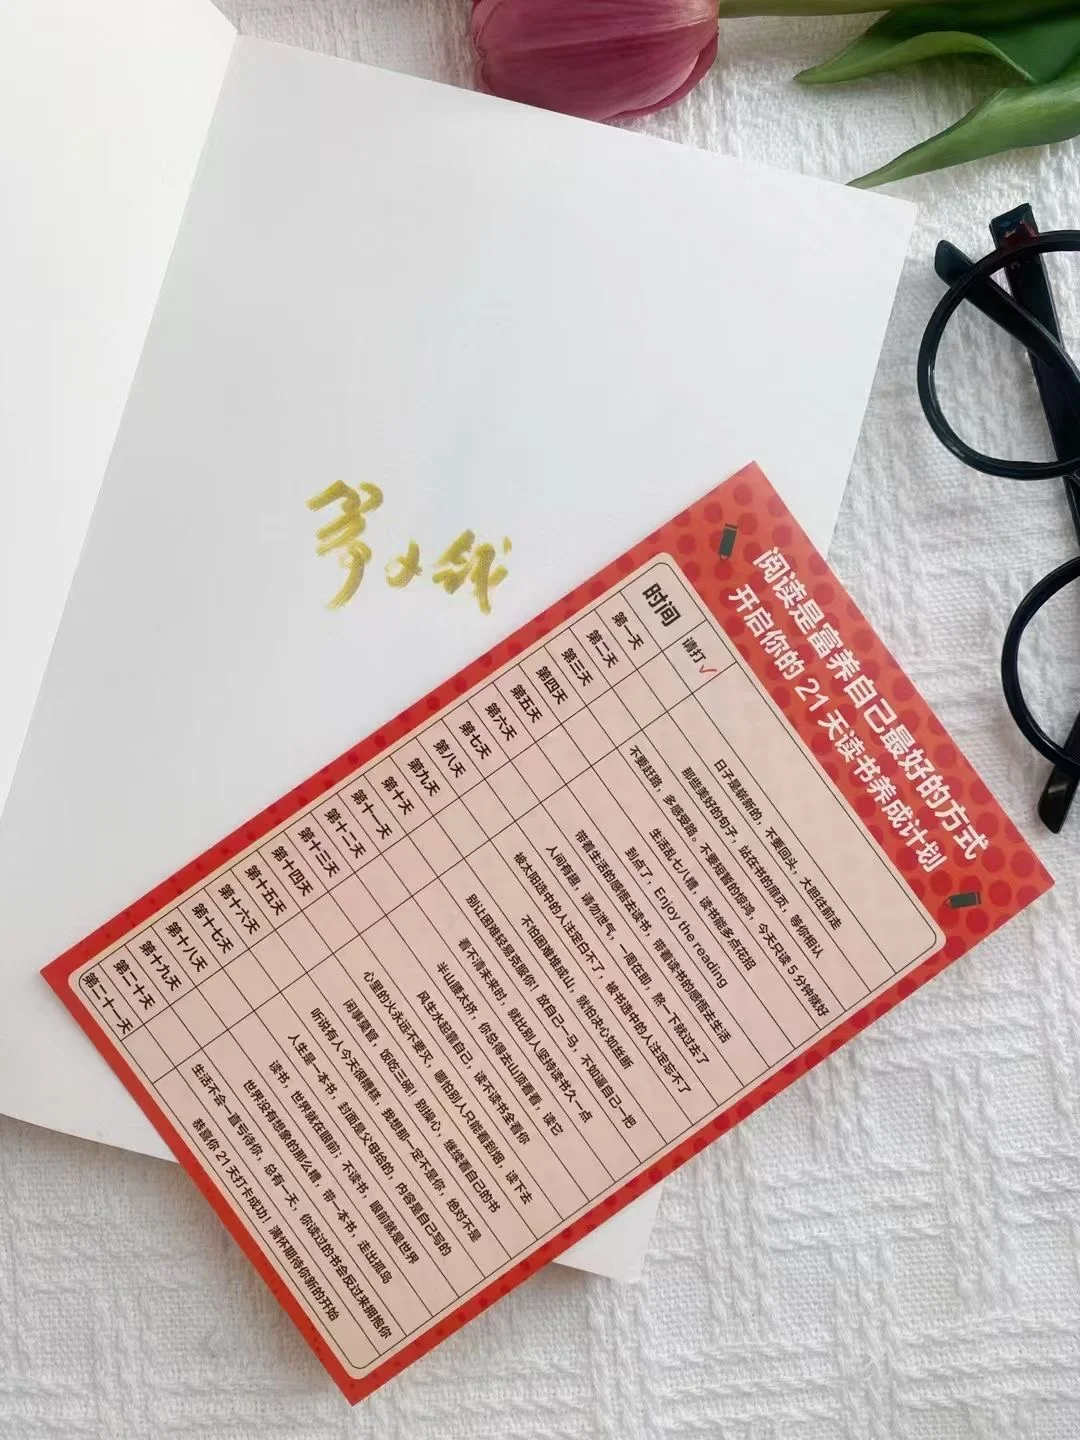 阅读是富养自己最好的方式
开启你的 21 天读书养成计划
时间 请打✓
第一天 日子是崭新的，不要回头，大胆往前走
第二天 那些美好的句子，站在书的扉页，等你相认
第三天 不要赶路，多感受路。不要短暂的惊鸿，今天只读 5 分钟就好
第四天 生活乱七八糟，读书能多点花招
第五天 到点了，Enjoy the reading
第六天 带着生活的感悟去读书，带着读书的感悟去生活
第七天 人间有趣，请勿泄气，一周在即，熬一下就过去了
第八天 被太阳选中的人注定白不了，被书选中的人注定忘不了
第九天 不怕困难堆成山，就怕决心如丝断
第十天 别让困难轻易克服你！放自己一马，不如逼自己一把
第十一天 看不清未来时，就比别人坚持读书久一点
第十二天 半山腰太挤，你总得去山顶看看，读它
第十三天 风生水起靠自己，读不读书全看你
第十四天 心里的火永远不要灭，哪怕别人只能看到烟，读下去
第十五天 闲事莫管，饭吃三碗！别操心，继续看自己的书
第十六天 听说有人今天很糟糕，我想那一定不是你，绝对不是
第十七天 人生是一本书，封面是父母给的，内容是自己写的
第十八天 读书，世界就在眼前；不读书，眼前就是世界
第十九天 世界没有想象的那么糟，带一本书，走出孤岛
第二十天 生活不会一直亏待你，总有一天，你读过的书会反过来拥抱你
第二十一天 恭喜你 21 天打卡成功！满怀期待你新的开始